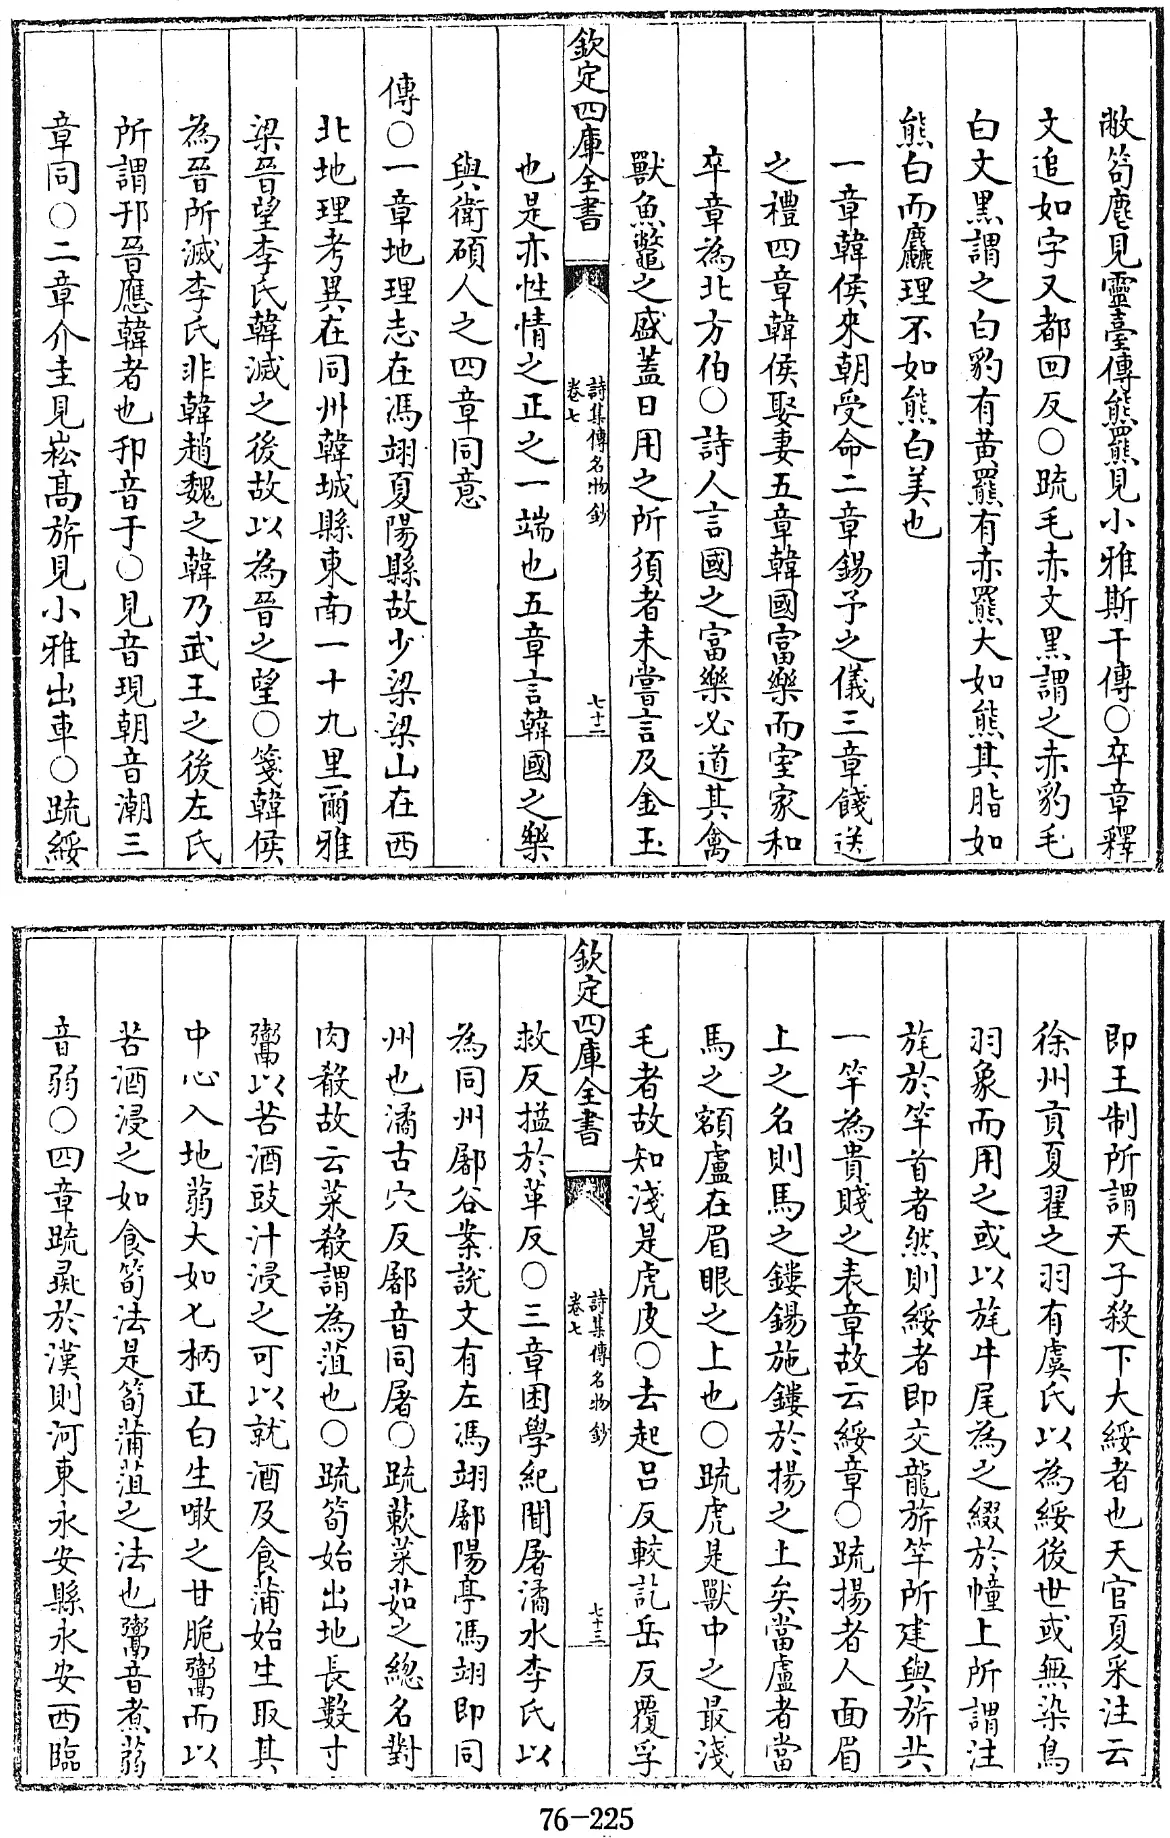 敝笱麀見靈臺傳熊羆見小雅斯干傳○卒章釋
文追如字又都回反○䟽毛赤文黒謂之赤豹毛
白文黒謂之白豹有黄羆有赤羆大如熊其脂如
熊白而麤理不如熊白美也
一章韓侯來朝受命二章錫予之儀三章餞送
之禮四章韓侯娶妻五章韓國富樂而室家和
卒章為北方伯○詩人言國之富樂必道其禽
獸魚鼈之盛蓋日用之所須者未嘗言及金玉
欽定四庫全書
詩集傳名物鈔
卷七
七十二
也是亦性情之正之一端也五章言韓國之樂
與衛碩人之四章同意
傳○一章地理志在馮翊夏陽縣故少梁梁山在西
北地理考異在同州韓城縣東南一十九里爾雅
梁晉望李氏韓滅之後故以為晉之望○箋韓侯
為晉所滅李氏非韓趙魏之韓乃武王之後左氏
所謂邘晉應韓者也邘音于○見音現朝音潮三
章同○二章介圭見崧高旂見小雅出車○䟽綏
即王制所謂天子殺下大綏者也天官夏采注云
徐州貢夏翟之羽有虞氏以為綏後世或無染鳥
羽象而用之或以旄牛尾為之綴於幢上所謂注
旄於竿首者然則綏者即交龍旂竿所建與旂共
一竿為貴賤之表章故云綏章○䟽揚者人面眉
上之名則馬之鏤鍚施鏤於揚之上矣當盧者當
馬之額盧在眉眼之上也○䟽虎是獸中之最淺
毛者故知淺是虎皮○去起呂反較訖岳反覆孚
欽定四庫全書
詩集傳名物鈔
卷七
七十三
救反搤於革反○三章困學紀聞屠潏水李氏以
為同州鄏谷案說文有左馮翊鄏陽亭馮翊即同
州也潏古穴反鄏音同屠○䟽蔌菜茹之總名對
肉殽故云菜殽謂為菹也○䟽筍始出地長數寸
鬻以苦酒豉汁浸之可以就酒及食蒲始生取其
中心入地蒻大如匕柄正白生噉之甘脆鬻而以
苦酒浸之如食筍法是筍蒲菹之法也鬻音煮蒻
音弱○四章䟽彘於漢則河東永安縣永安西臨
76-225